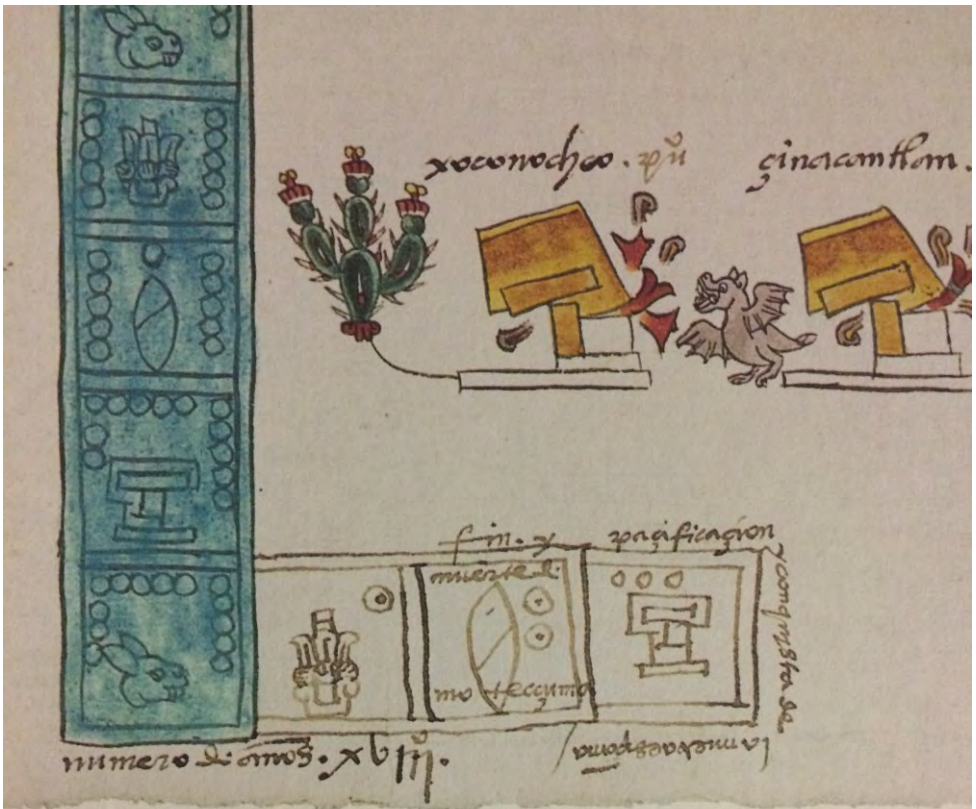 xoconochco. pũ
çinacantlan.
fin. y
muerte de
motecçuma
paçificaçion
y conquista de
la nueva españa
numero de años.